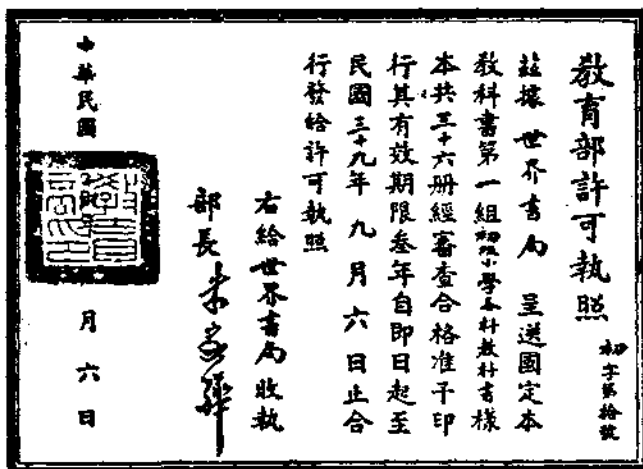 教育部許可執照
初字第拾號
茲據 世界書局 呈送國定本
教科書第一組初級小學各科教科書樣
本共三十六册經審查合格准予印
行其有效期限叁年自即日起至
民國三十九年九月六日止合
行發給許可執照
右給世界書局收執
部長 朱家驊
中華民國
月六日